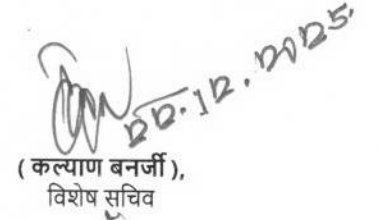 22.12.2025
( कल्याण बनर्जी ),
विशेष सचिव